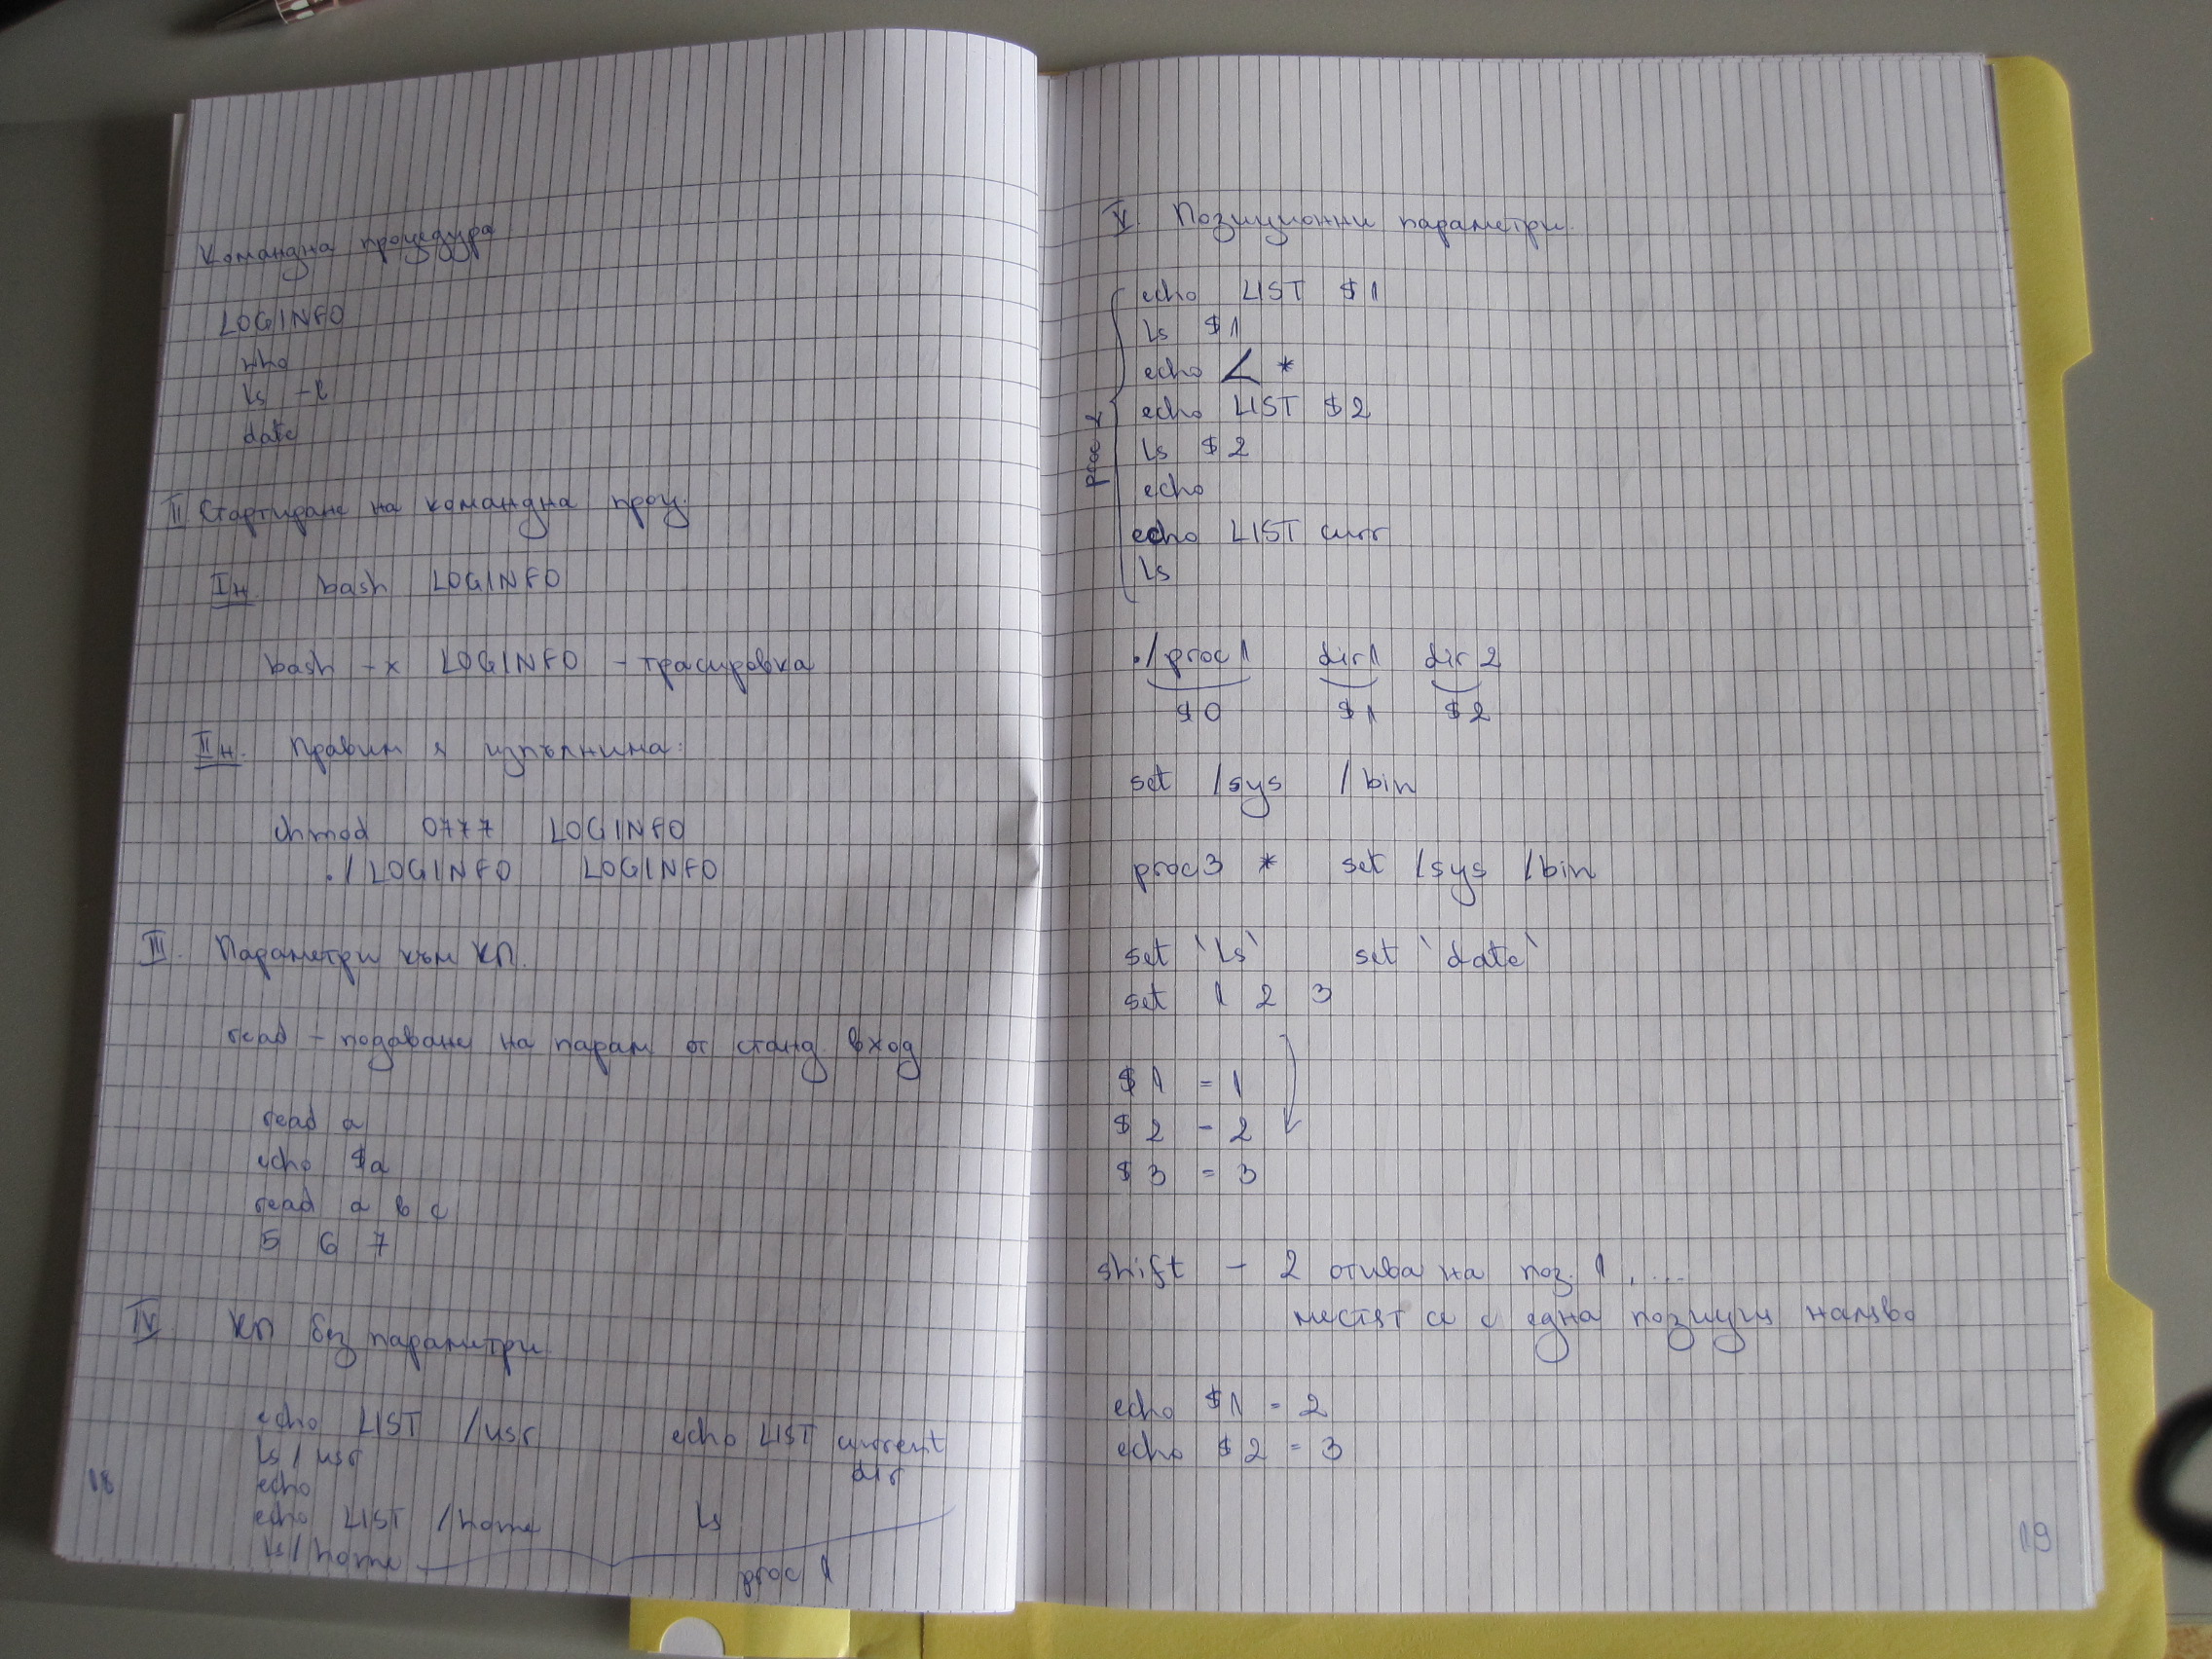 Командна процедура
LOGINFO
who
ls -l
date
II Стартиране на командна проц.
I н. bash LOGINFO
bash -x LOGINFO - трасировка
II н. Правим я изпълнима:
chmod 0777 LOGINFO
./LOGINFO LOGINFO
III. Параметри към КП.
read - подаване на парам от станд. вход
read a
echo $a
read a b c
5 6 7
IV КП без параметри
echo LIST /usr
ls /usr
echo
echo LIST /home
ls /home
echo LIST current
dir
ls
proc 1
18
V. Позиционни параметри.
proc 2
echo LIST $1
ls $1
echo *
echo LIST $2
ls $2
echo
echo LIST curr
ls
./proc1 dir1 dir2
$0 $1 $2
set /sys /bin
proc3 * set /sys /bin
set `ls` set `date`
set 1 2 3
$1 = 1
$2 - 2
$3 = 3
shift - 2 отива на поз. 1, ....
местят се с една позиция наляво
echo $1 = 2
echo $2 = 3
19